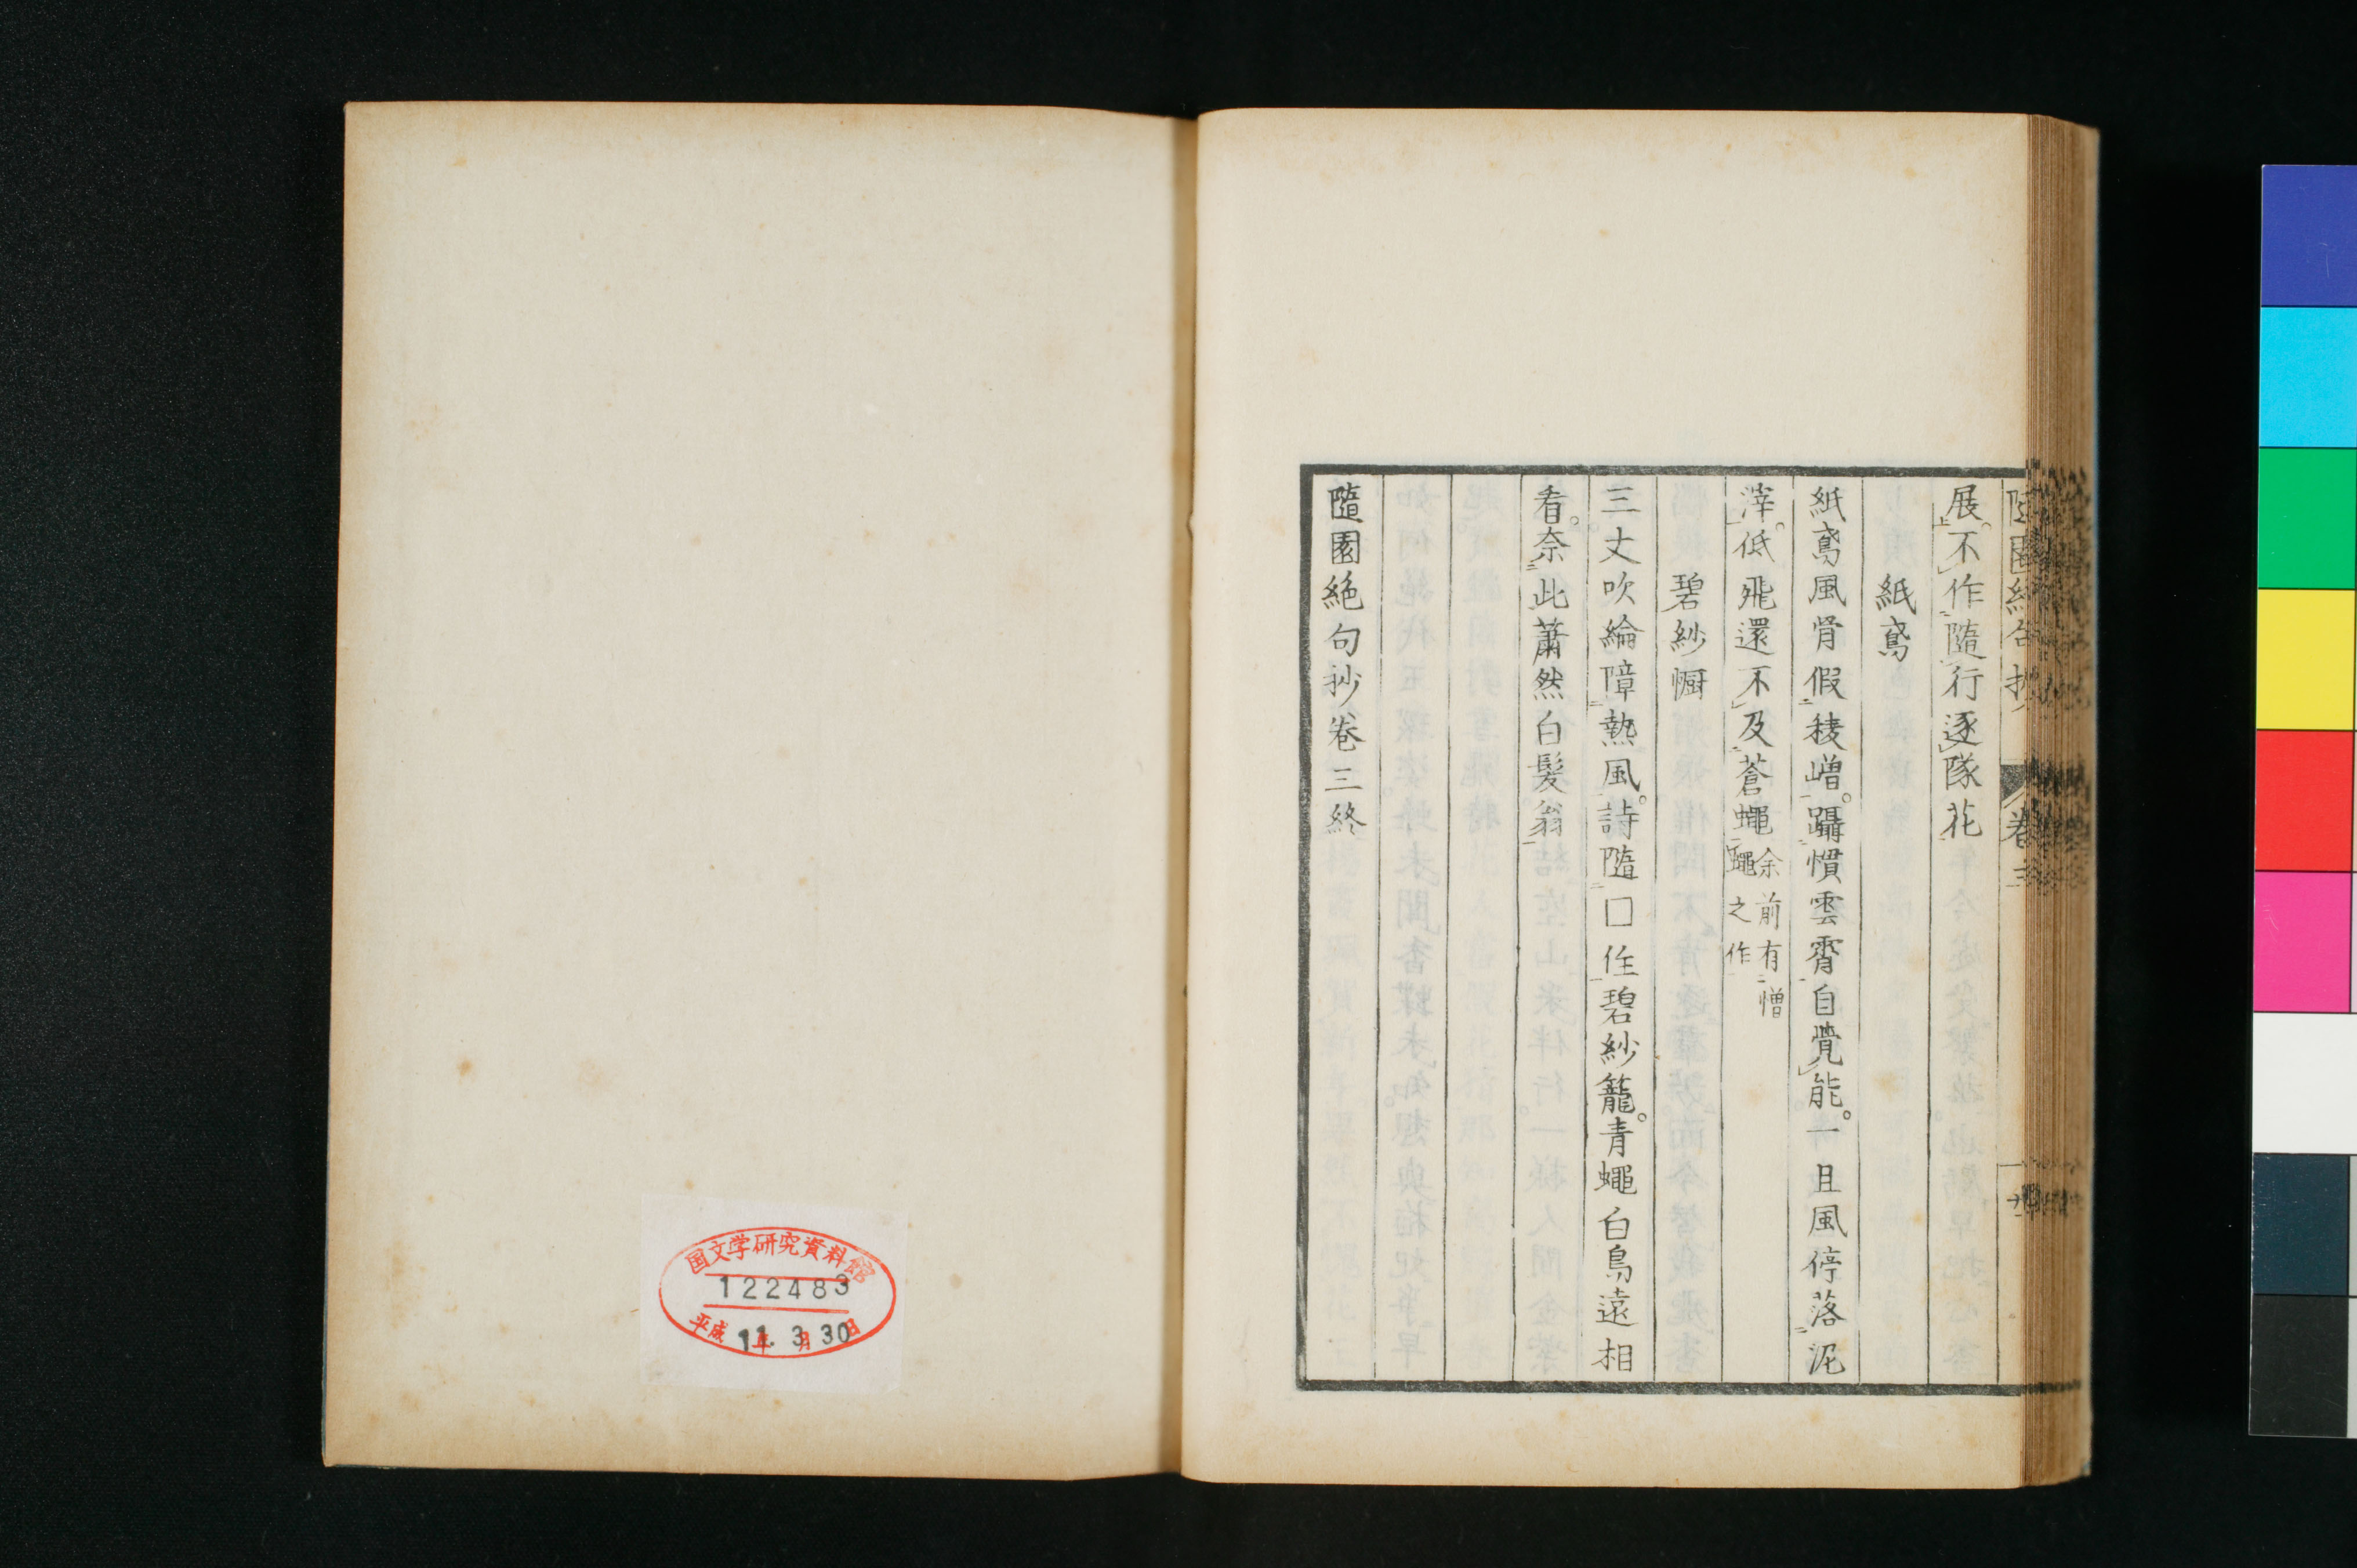 展不作隨行逐隊花
紙鳶
紙鳶風骨假稜嶒躡慣雲霄自覺能一且風停落泥
滓低飛還不及蒼蠅余前有憎蠅之作
碧紗㡡
三丈吹綸障熱風詩隨口住碧紗籠青蠅白鳥遠相
看奈此蕭然白髮翁
隨園絶句抄卷三終
国文学研究資料館
122483
平成11年3月30日